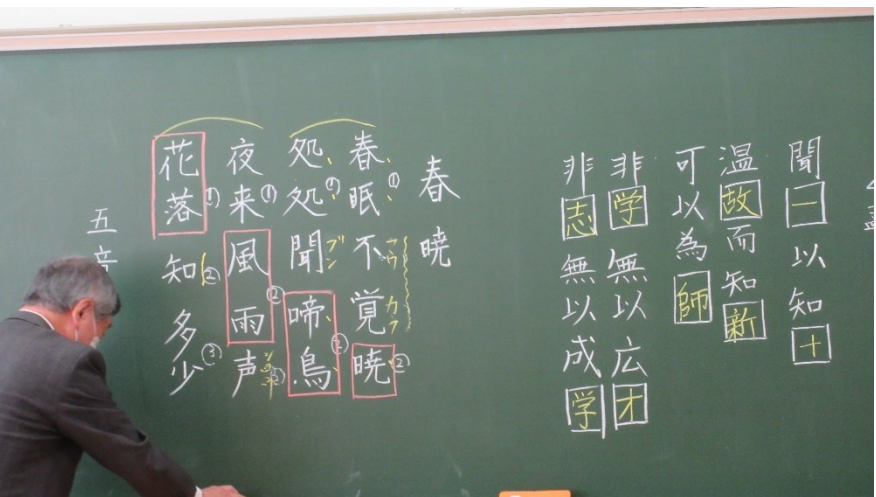 聞一以知十
温故而知新
可以為師
非学無以広才
非志無以成学
春暁
春眠不覚暁
処処聞啼鳥
ブン
夜来風雨声
花落知多少
五音